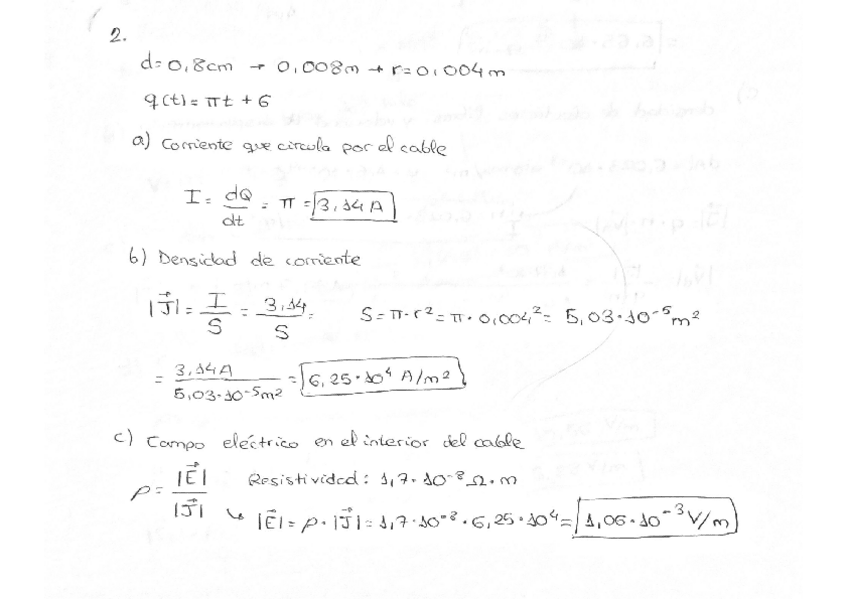 2.
d=0,8cm → 0,008m → r=0,004m
q(t)=πt + 6
a) Corriente que circula por el cable
I = dQ/dt = π = 3,14A
b) Densidad de corriente
|J⃗| = I/S = 3,14/S = S=π·r²=π·0,004²= 5,03·10⁻⁵m²
= 3,14A/5,03·10⁻⁵m² = 6,25·10⁴ A/m²
c) Campo eléctrico en el interior del cable
ρ = |E⃗|/|J⃗| Resistividad: 1,7·10⁻⁸Ω·m
↳ |E⃗|=ρ·|J⃗|=1,7·10⁻⁸·6,25·10⁴= 1,06·10⁻³V/m